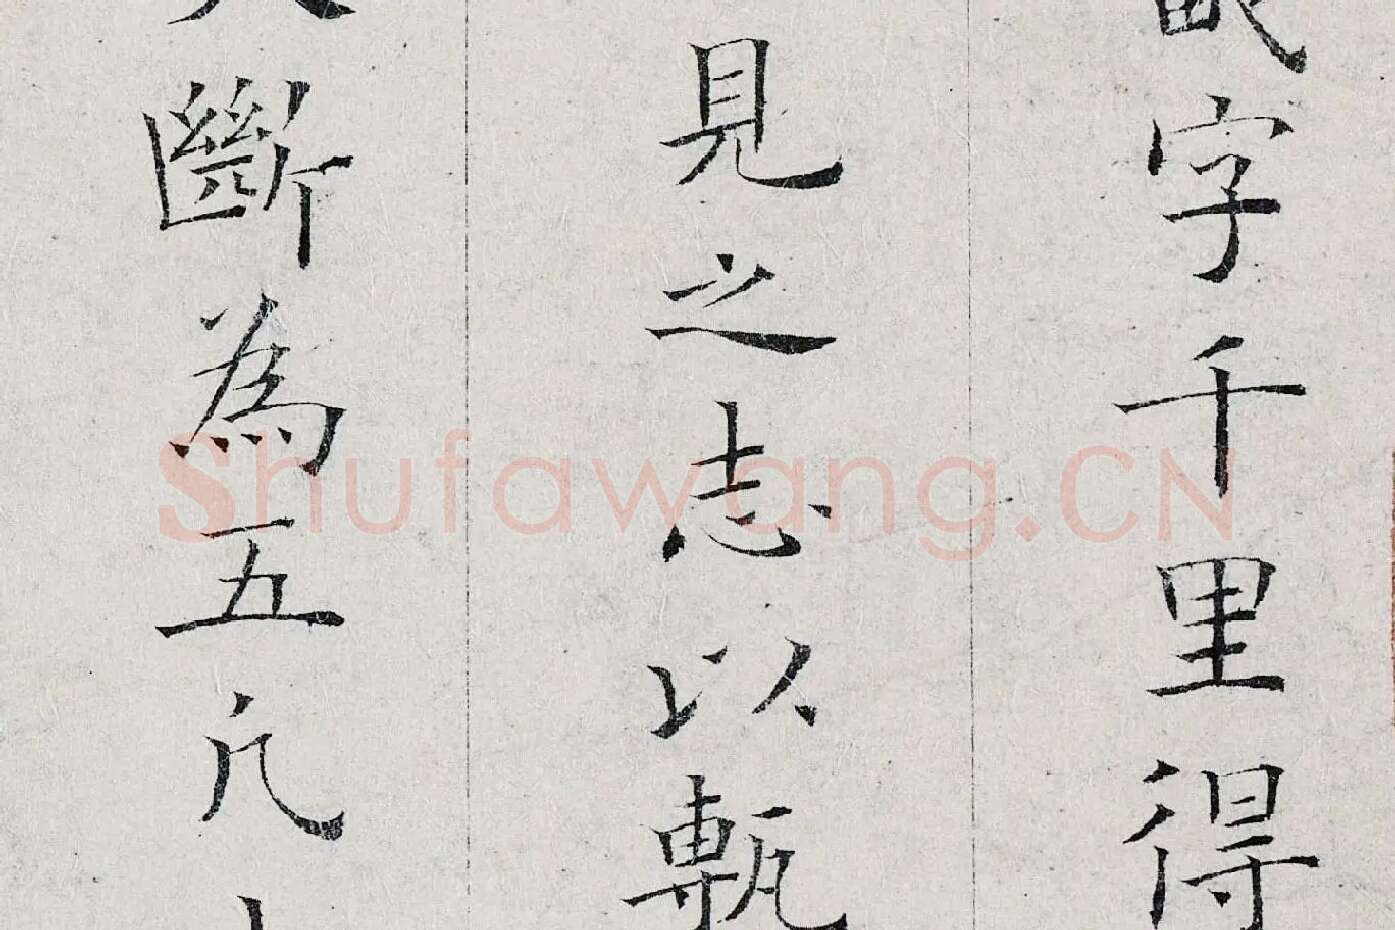 字千里得
見之志以甎
斷為五凡
Shufawang.CN